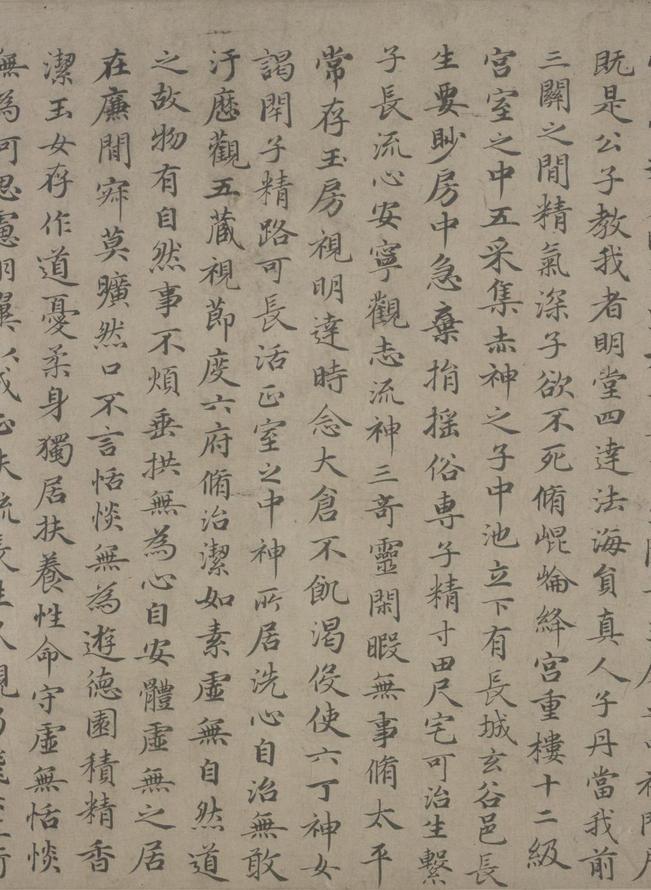 既是公子教我者明堂四達法海負真人子丹當我前
三關之間精氣深子欲不死脩崐崘絳宮重樓十二級
宮室之中五采集赤神之子中池立下有長城玄谷邑長
生要眇房中急棄捐搖俗專子精寸田尺宅可治生繫
子長流心安寧觀志流神三奇靈閑暇無事脩太平
常存玉房視明達時念大倉不飢渴伇使六丁神女
謁閉子精路可長活正室之中神所居洗心自治無敢
汙歷觀五藏視節度六府脩治潔如素虛無自然道
之故物有自然事不煩垂拱無為心自安體虛無之居
在廉間寂莫曠然口不言恬惔無為遊德園積精香
潔玉女存作道憂柔身獨居扶養性命守虛無恬惔
無為何思慮羽翼以成正扶疏長生久視乃飛